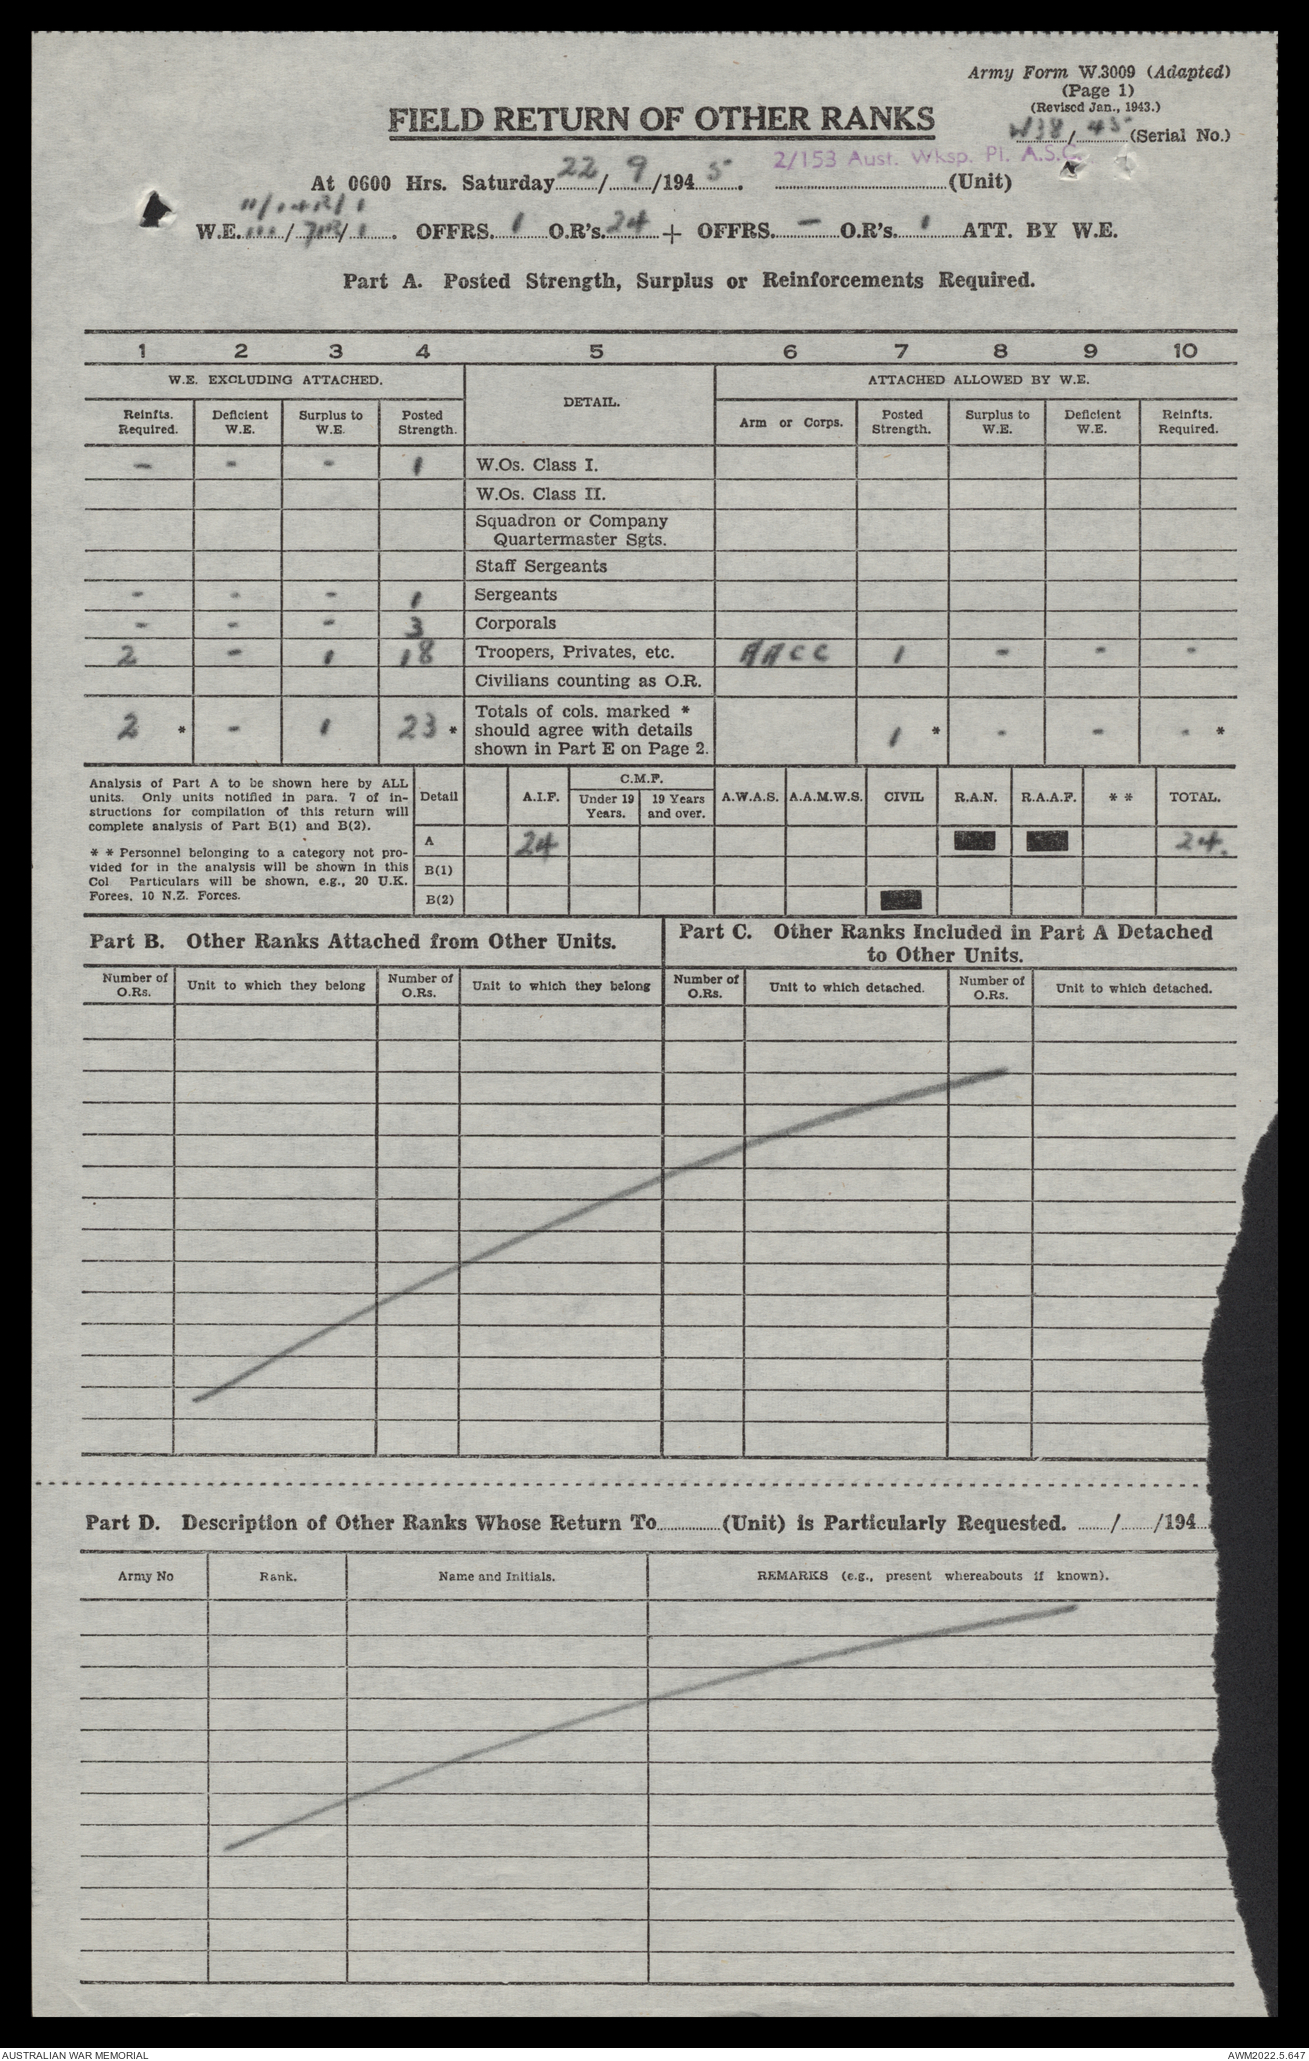 Army Form W.3009 (Adapted)
(Page 1)
(Revised Jan., 1943.)
FIELD RETURN OF OTHER RANKS
W38/45 (Serial No.)
2/153 Aust. Wksp. Pl. A.S.C.
At 0600 Hrs. Saturday 22/9/1945. (Unit)
W.E. / / 1. OFFRS. 1 O.R's. 24 + OFFRS. - O.R's. 1 ATT. BY W.E.
Part A. Posted Strength, Surplus or Reinforcements Required.
1 2 3 4 5 6 7 8 9 10
W.E. EXCLUDING ATTACHED. DETAIL. ATTACHED ALLOWED BY W.E.
Reinfts. Required. Deficient W.E. Surplus to W.E. Posted Strength. Arm or Corps. Posted Strength. Surplus to W.E. Deficient W.E. Reinfts. Required.
- - - 1 W.Os. Class I.
W.Os. Class II.
Squadron or Company
Quartermaster Sgts.
Staff Sergeants
- - - 1 Sergeants
- - - 3 Corporals
2 - 1 18 Troopers, Privates, etc. AACC 1 - - -
Civilians counting as O.R.
Totals of cols. marked *
2 * - 1 23 * should agree with details 1 * - - - *
shown in Part E on Page 2.
Analysis of Part A to be shown here by ALL
units. Only units notified in para. 7 of in-
structions for compilation of this return will
complete analysis of Part B(1) and B(2).
* * Personnel belonging to a category not pro-
vided for in the analysis will be shown in this
Col Particulars will be shown, e.g., 20 U.K.
Forces, 10 N.Z. Forces.
C.M.F.
Detail A.I.F. Under 19 Years. 19 Years and over. A.W.A.S. A.A.M.W.S. CIVIL R.A.N. R.A.A.F. * * TOTAL.
A 24 24.
B(1)
B(2)
Part B. Other Ranks Attached from Other Units.
Part C. Other Ranks Included in Part A Detached
to Other Units.
Number of O.Rs. Unit to which they belong Number of O.Rs. Unit to which they belong Number of O.Rs. Unit to which detached. Number of O.Rs. Unit to which detached.
Part D. Description of Other Ranks Whose Return To (Unit) is Particularly Requested. / /194
Army No Rank. Name and Initials. REMARKS (e.g., present whereabouts if known).
AUSTRALIAN WAR MEMORIAL AWM2022.5.647